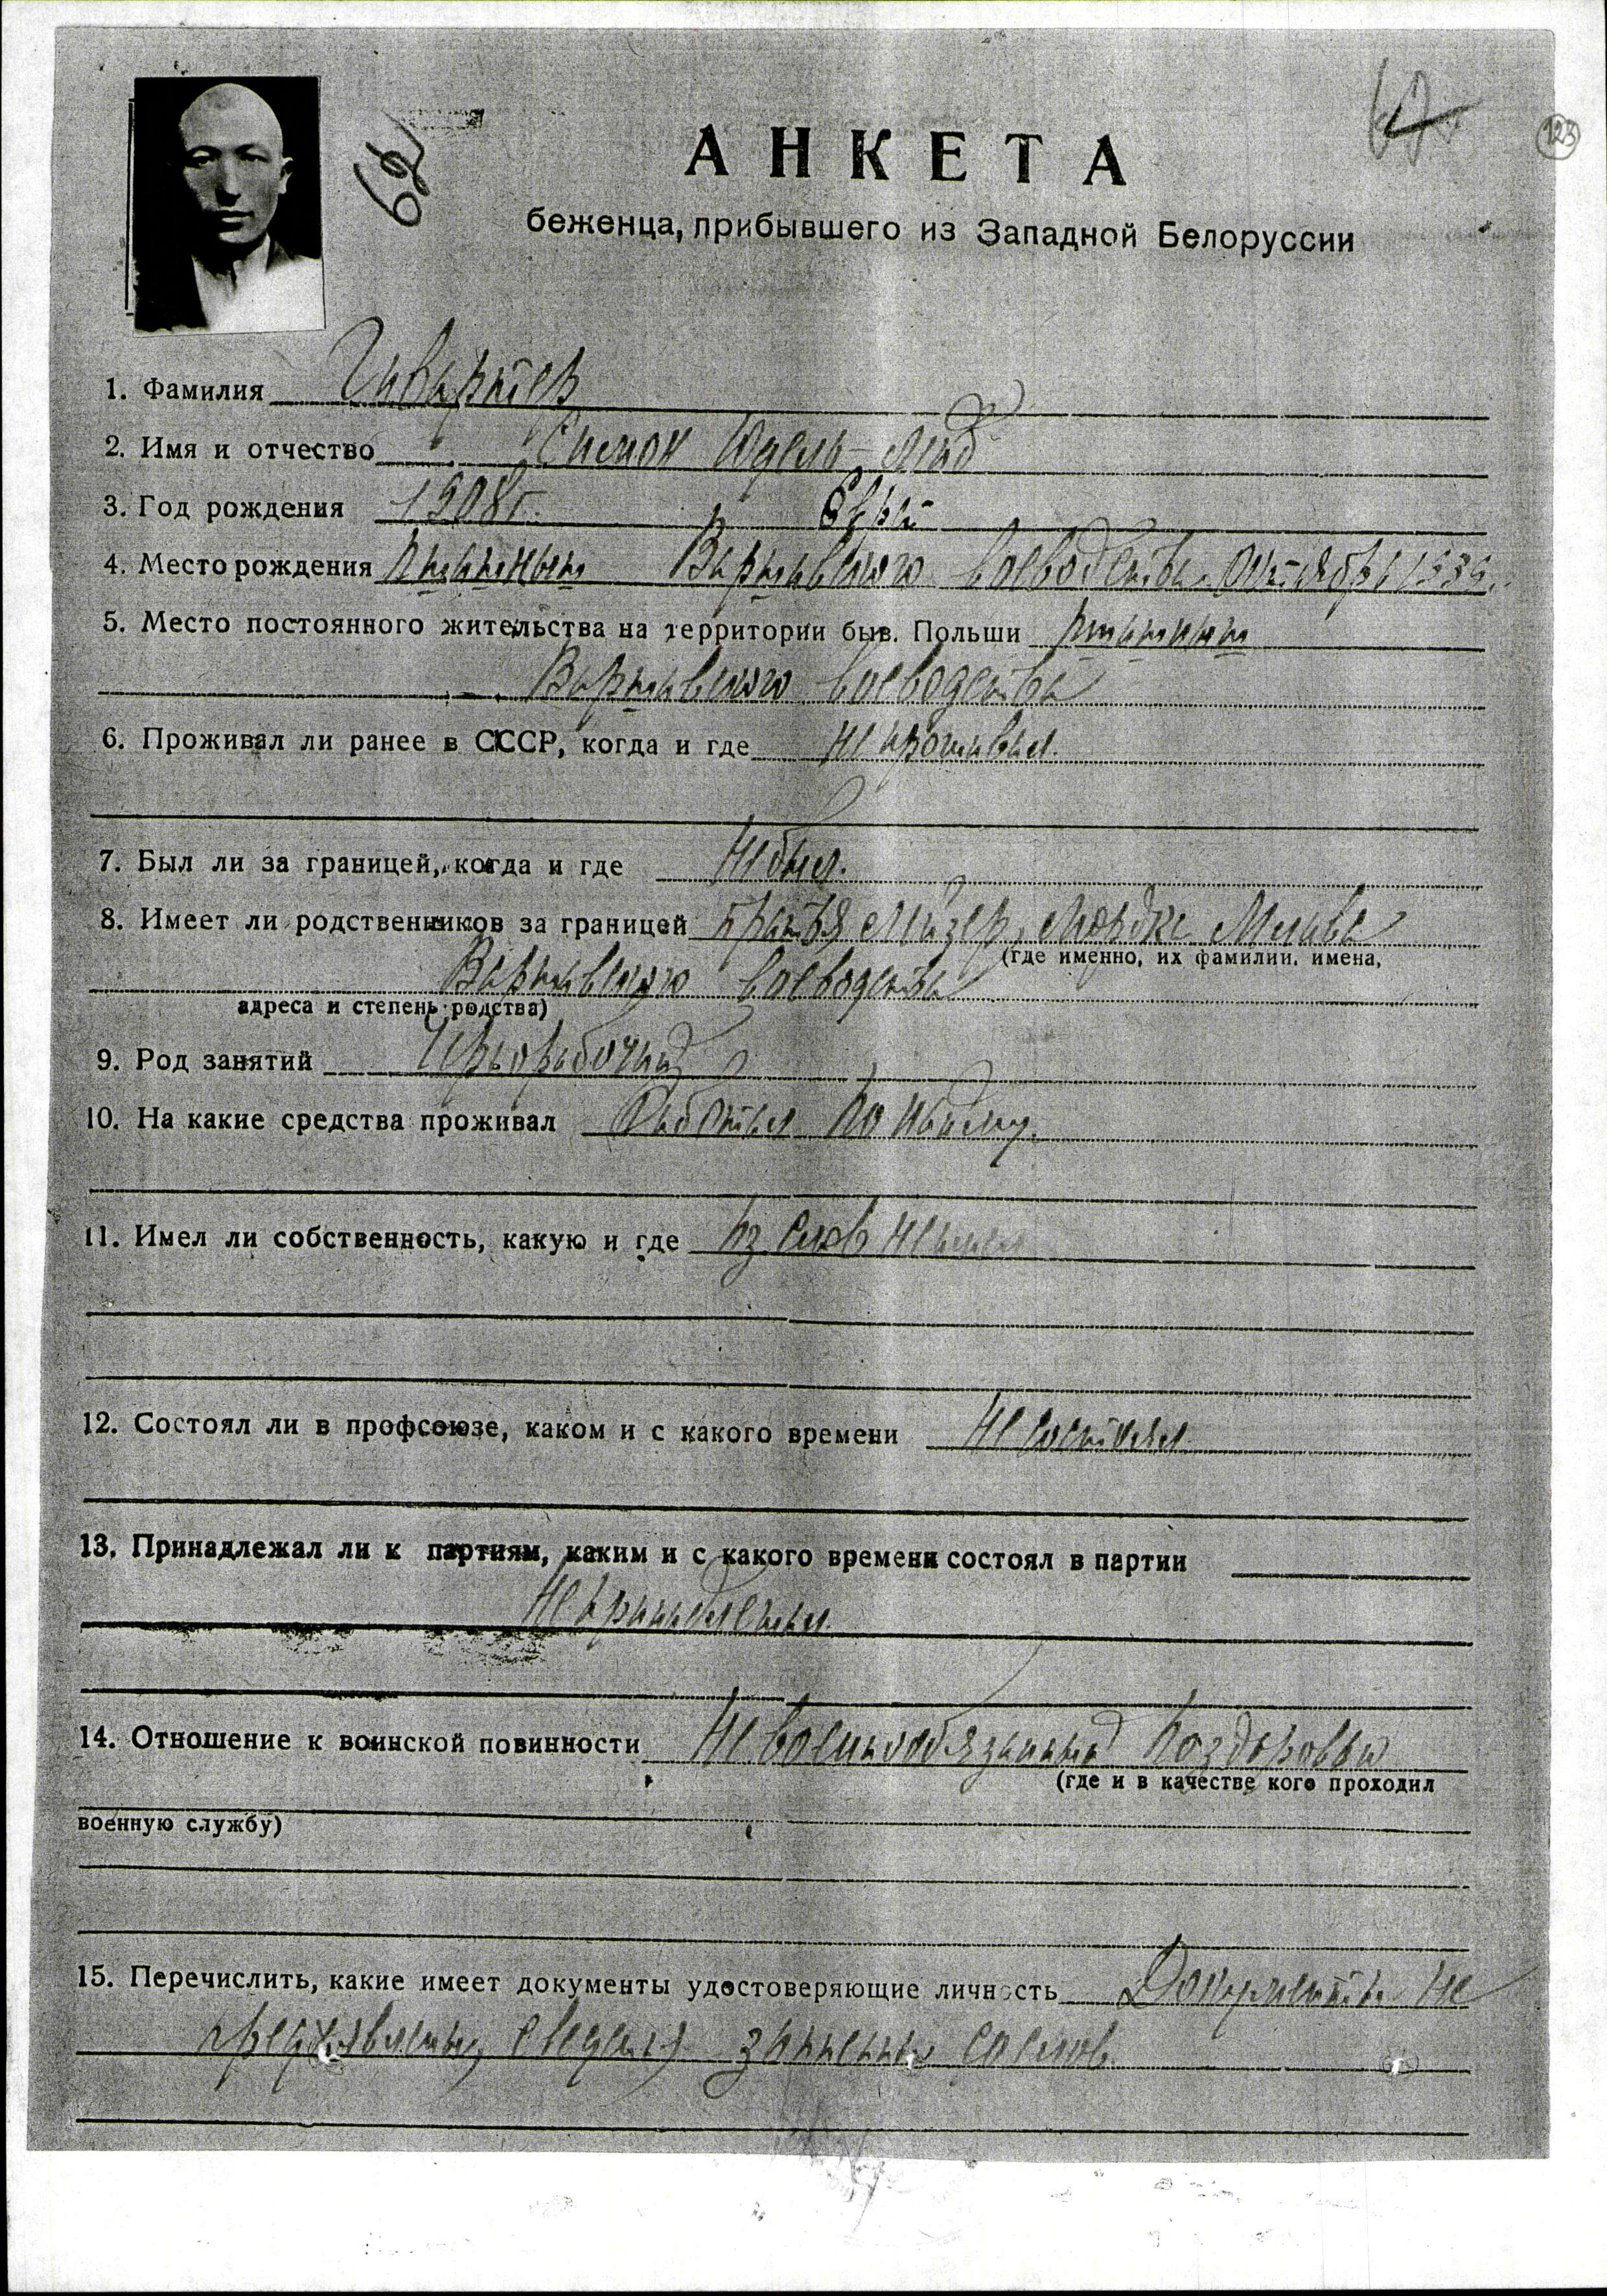 62
67
123
АНКЕТА
беженца, прибывшего из Западной Белоруссии
1. Фамилия
2. Имя и отчество Симон Юдель-Лейб
3. Год рождения 1908 г. Еврей
4. Место рождения Варшавского воеводства Октябрь 1939
5. Место постоянного жительства на территории быв. Польши
Варшавского воеводства
6. Проживал ли ранее в СССР, когда и где не проживал.
7. Был ли за границей, когда и где Не был.
8. Имеет ли родственников за границей братья Мордке Млава
(где именно, их фамилии, имена,
Варшавского воеводства
адреса и степень родства)
9. Род занятий Чернорабочий
10. На какие средства проживал Работал по найму.
11. Имел ли собственность, какую и где слов не имел
12. Состоял ли в профсоюзе, каком и с какого времени Не состоял
13. Принадлежал ли к партиям, каким и с какого времени состоял в партии
Не принадлежал.
14. Отношение к воинской повинности Не военнообязанный
(где и в качестве кого проходил
военную службу)
15. Перечислить, какие имеет документы удостоверяющие личность Документы не
со слов.